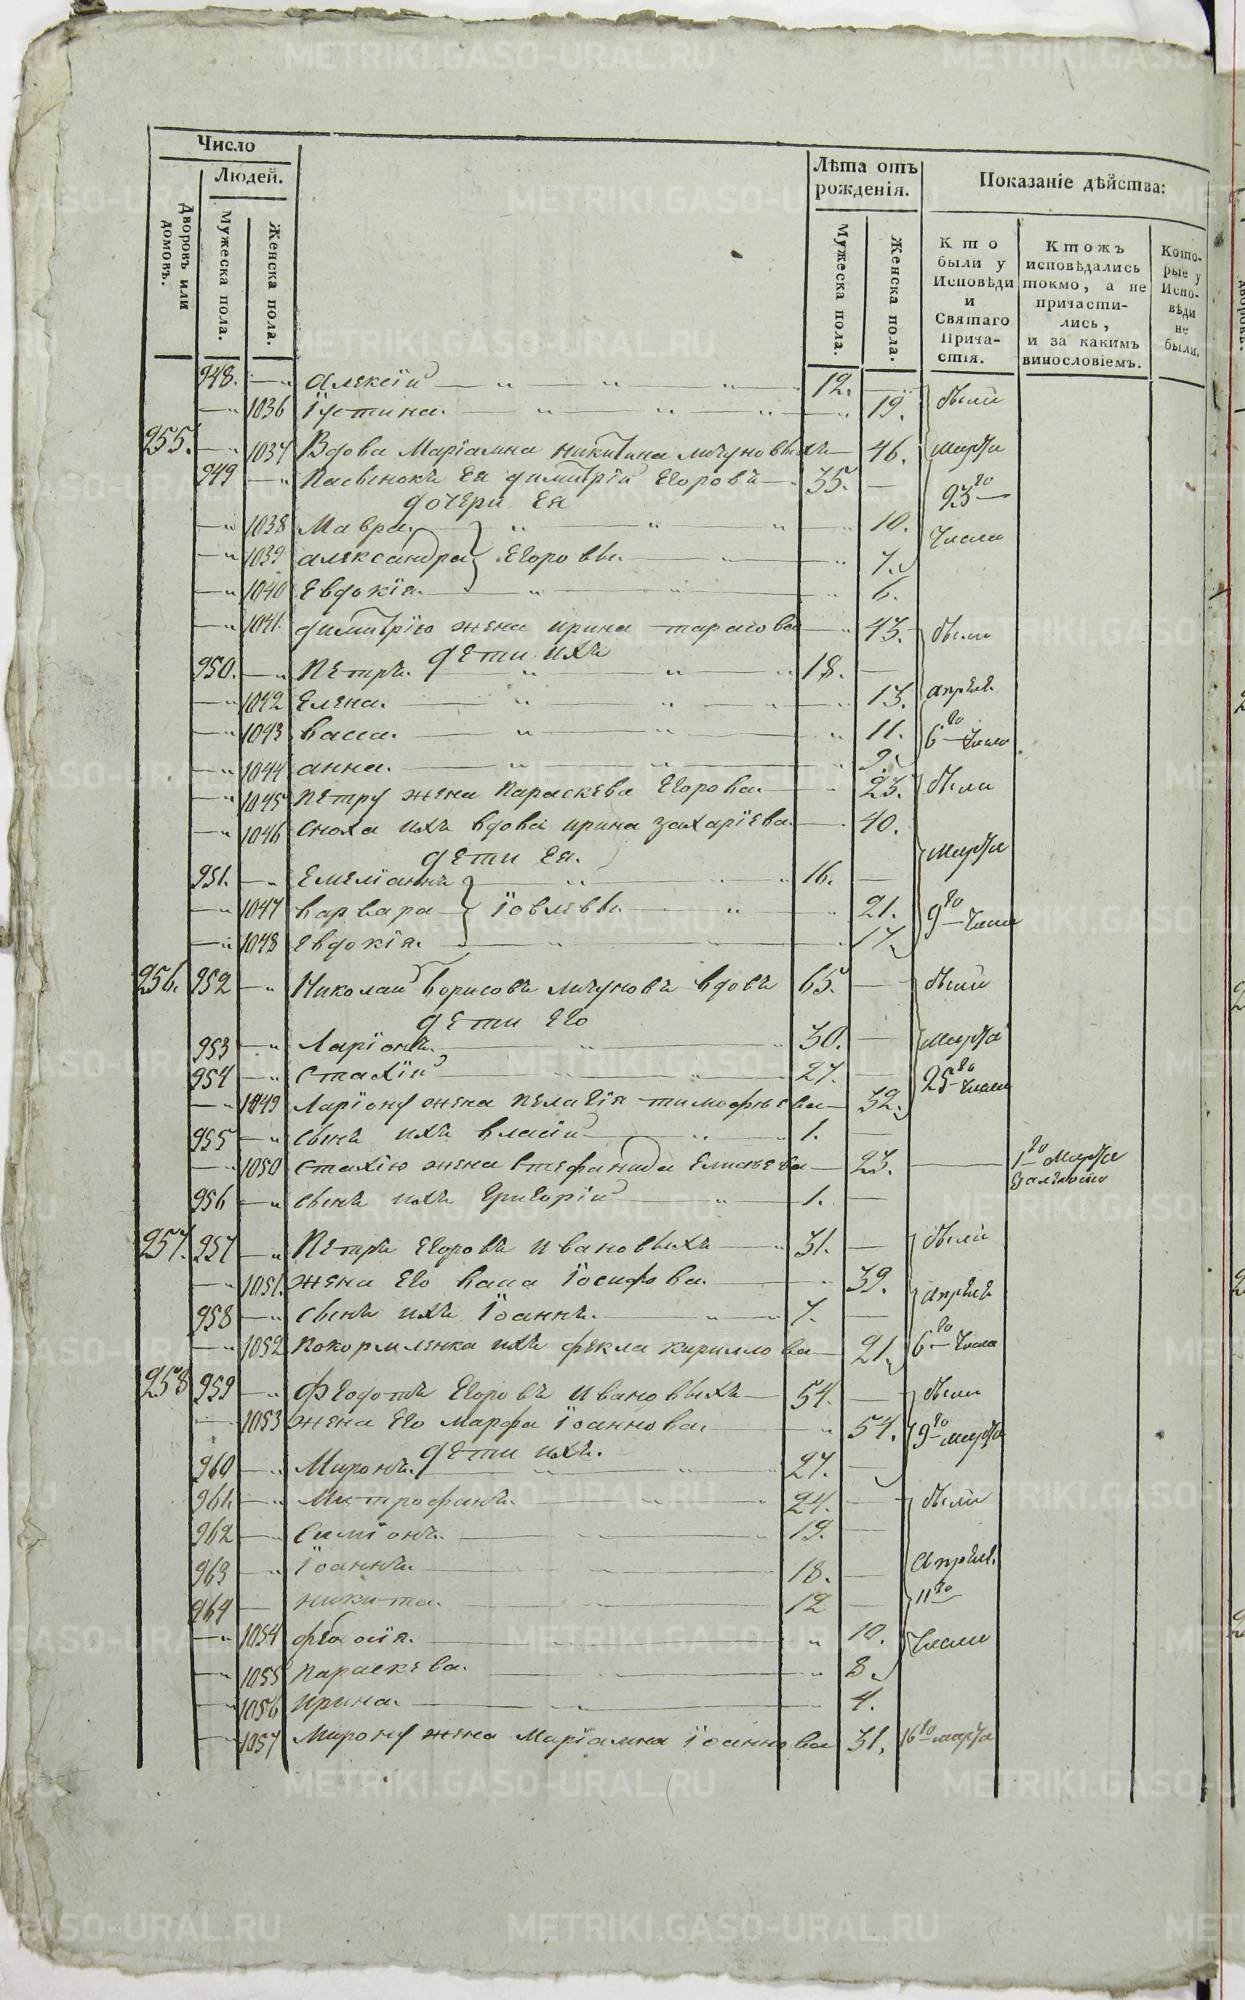 Число
Людей.
Дворовъ или домовъ.
Мужеска пола.
Женска пола.
Лѣта отъ рожденія.
Мужеска пола.
Женска пола.
Показаніе дѣйства:
Кто были у Исповѣди и Святаго Причастія.
Ктожъ исповѣдались токмо, а не причастились, и за какимъ винословіемъ.
Которые у Исповѣди не были.
948. Алексій 12. были
1036 Іустина. 19.
255. 1037 Вдова Маріамна Никитина 46. марта
949 Пасынокъ ея Димитрій Егоровъ 35. 23го
дочери ея
1038 Мавра 10. числа
1039 Александра Егоровы 7.
1040 Евдокія 6.
1041. Димитрію жена Ирина Тарасова 43. были
дети ихъ
950. Петръ. 18.
1042 Елена. 13. апреля
1043 Васса. 11. 6го числа
1044 Анна. 9.
1045 Петру жена Параскева Егорова. 23. были
1046 Сноха ихъ вдова Ирина Захаріева. 40.
дети ея. марта
951. Емеліанъ 16.
1047 Варвара Іовлевы 21. 9го числа
1048 Евдокія. 17.
256. 952 Николай Борисовъ вдовъ 65. были
дети его
953 Ларіонъ. 30. марта
954 Стахій 27. 25го числа
1049 Ларіону жена Пелагія Тимофеева 32.
955 сынъ ихъ Власій 1.
1050 Стахію жена Стефанида Елисеева 23. 1го марта
956 сынъ ихъ Григорій 1.
257. 957 Петръ Егоровъ Ивановыхъ 31. были
1051. жена его Васса Іосифова. 39. апреля
958 сынъ ихъ Іоаннъ. 7.
1052 Покормленка ихъ Фекла Кириллова 21. 6го числа
258 959 Феодотъ Егоровъ Ивановыхъ 54. были
1053 жена его Марфа Іоаннова. 54. 9го марта
дети ихъ.
960 Миронъ. 27.
961. Митрофанъ. 24. были
962 Симіонъ. 19.
963 Іоаннъ. 18. Апреля
964 Никита. 12 11го
1054 10. числа
1055 Параскева. 8.
1056 Ирина. 4.
1057 Мирону жена Маріамна Іоаннова 31. 16го марта
METRIKI.GASO-URAL.RU